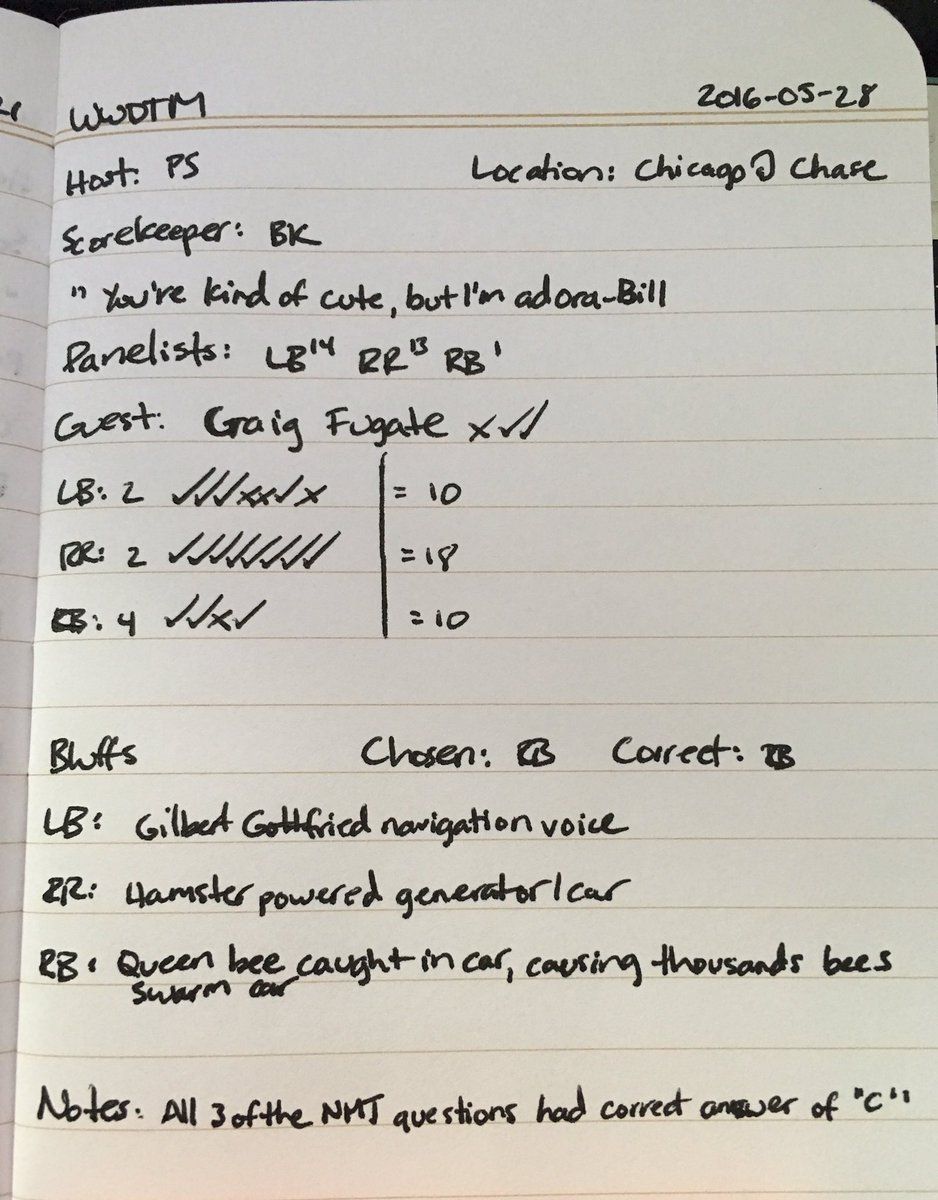 WWDTM 2016-05-28
Host: PS Location: Chicago @ Chase
Scorekeeper: BK
" You're kind of cute, but I'm adora-Bill
Panelists: LB14 RR13 RB1
Guest: Craig Fugate x✓✓
LB: 2 ✓✓✓xx✓x = 10
RR: 2 ✓✓✓✓✓✓✓✓ = 18
RB: 4 ✓✓x✓ = 10
Bluffs Chosen: RB Correct: RB
LB: Gilbert Gottfried navigation voice
RR: Hamster powered generator/car
RB: Queen bee caught in car, causing thousands bees
swarm car
Notes: All 3 of the NMJ questions had correct answer of "C"